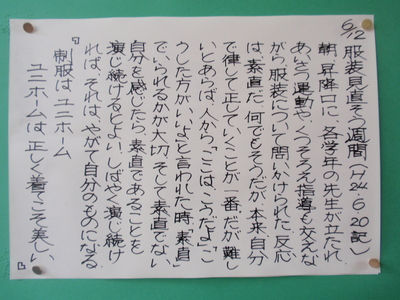 6/12 服装見直そう週間（H24.6.20記）
朝、昇降口に、各学年の先生が立たれ、
あいさつ運動や、くつそろえ指導も交えな
がら、服装について問いかけられた。反応
は、素直だ。何でもそうだが、本来、自分
で律して正していくことが一番だが、難し
いとあらば、人から、「ここは、こうだよ」「こ
うした方がいいよ」と言われた時、「素直」
でいられるかが大切。そして素直でない
自分を感じたら、素直であることを
演じ続けるとよい。しばらく演じ続け
れば、それは、やがて自分のものになる。
制服は、ユニホーム
ユニホームは、正しく着てこそ美しい。